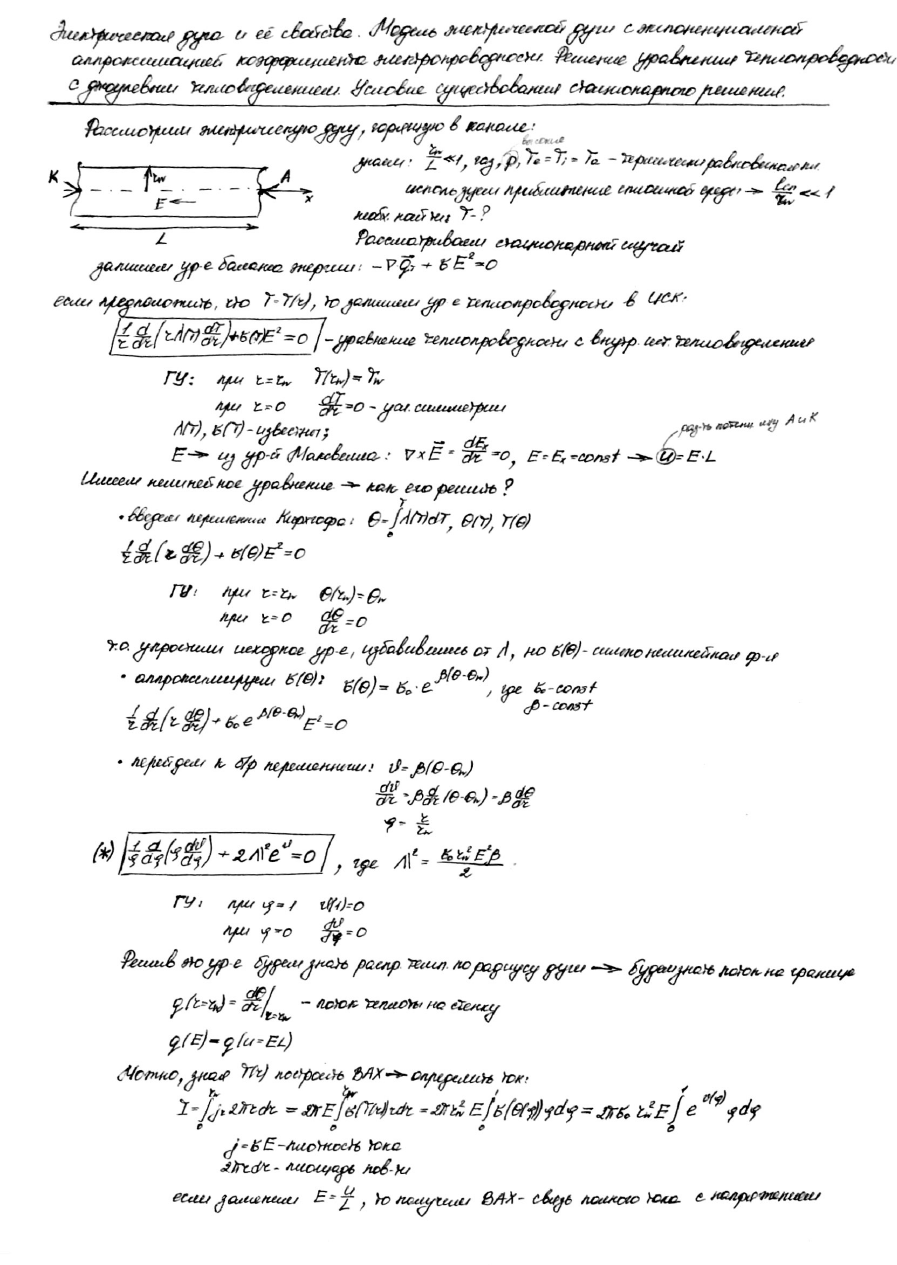 Электрическая дуга и её свойства. Модель электрической дуги с экспоненциальной
аппроксимацией коэффициента электропроводности. Решение уравнения теплопроводности
с джоулевым тепловыделением. Условие существования стационарного решения.
Рассмотрим электрическую дугу, горящую в канале:
K A r_w E x L
знаем: r_w/L ≪ 1, газ, p, T_e = T_i = T_a – термически равновесная пл.
высокие
используем приближение сплошной среды → l_сп/r_w ≪ 1
необх. найти: T-?
Рассматриваем стационарный случай
запишем ур-е баланса энергии: -∇q⃗_T + σE⃗² = 0
если предположить, что T=T(r), то запишем ур-е теплопроводности в ЦСК:
1/r d/dr (r λ(T) dT/dr) + σ(T)E² = 0 – уравнение теплопроводности с внутр. ист. тепловыделения
ГУ: при r=r_w T(r_w)=T_w
при r=0 dT/dr=0 – усл. симметрии
λ(T), σ(T) – известны;
разть потенц. м/у А и К
E → из ур-й Максвелла: ∇×E⃗ = dE_x/dr = 0, E=E_x=const → U=E·L
Имеем нелинейное уравнение → как его решить?
• введем переменные Кирхгофа: θ=∫₀ᵀ λ(T)dT, θ(T), T(θ)
1/r d/dr (r dθ/dr) + σ(θ)E² = 0
ГУ: при r=r_w θ(r_w)=θ_w
при r=0 dθ/dr=0
т.о. упростили исходное ур-е, избавившись от λ, но σ(θ) – сильно нелинейная ф-я
• аппроксимируем σ(θ): σ(θ) = σ₀·e^{β(θ-θ_w)}, где σ₀-const
β-const
1/r d/dr (r dθ/dr) + σ₀e^{β(θ-θ_w)}E² = 0
• перейдем к б/р переменным: ϑ=β(θ-θ_w)
dϑ/dr = β d/dr (θ-θ_w) = β dθ/dr
ρ = r/r_w
(*) 1/ρ d/dρ (ρ dϑ/dρ) + 2Λ²e^ϑ = 0, где Λ² = σ₀r_w²E²β/2
ГУ: при ρ=1 ϑ(1)=0
при ρ=0 dϑ/dρ=0
Решив это ур-е будем знать распр. темп. по радиусу дуги → будем знать поток на границе
q(r=r_w) = dθ/dr|_{r=r_w} – поток теплоты на стенку
q(E) = q(U=EL)
Можно, зная T(r) построить ВАХ → определить ток:
I = ∫₀^{r_w} j·2πrdr = 2πE∫₀^{r_w} σ(T(r))rdr = 2πr_w²E∫₀¹ σ(θ(ρ))ρdρ = 2πσ₀r_w²E∫₀¹ e^{ϑ(ρ)}ρdρ
j=σE – плотность тока
2πrdr – площадь пов-ти
если заменим E=U/L, то получим ВАХ – связь полного тока с напряжением